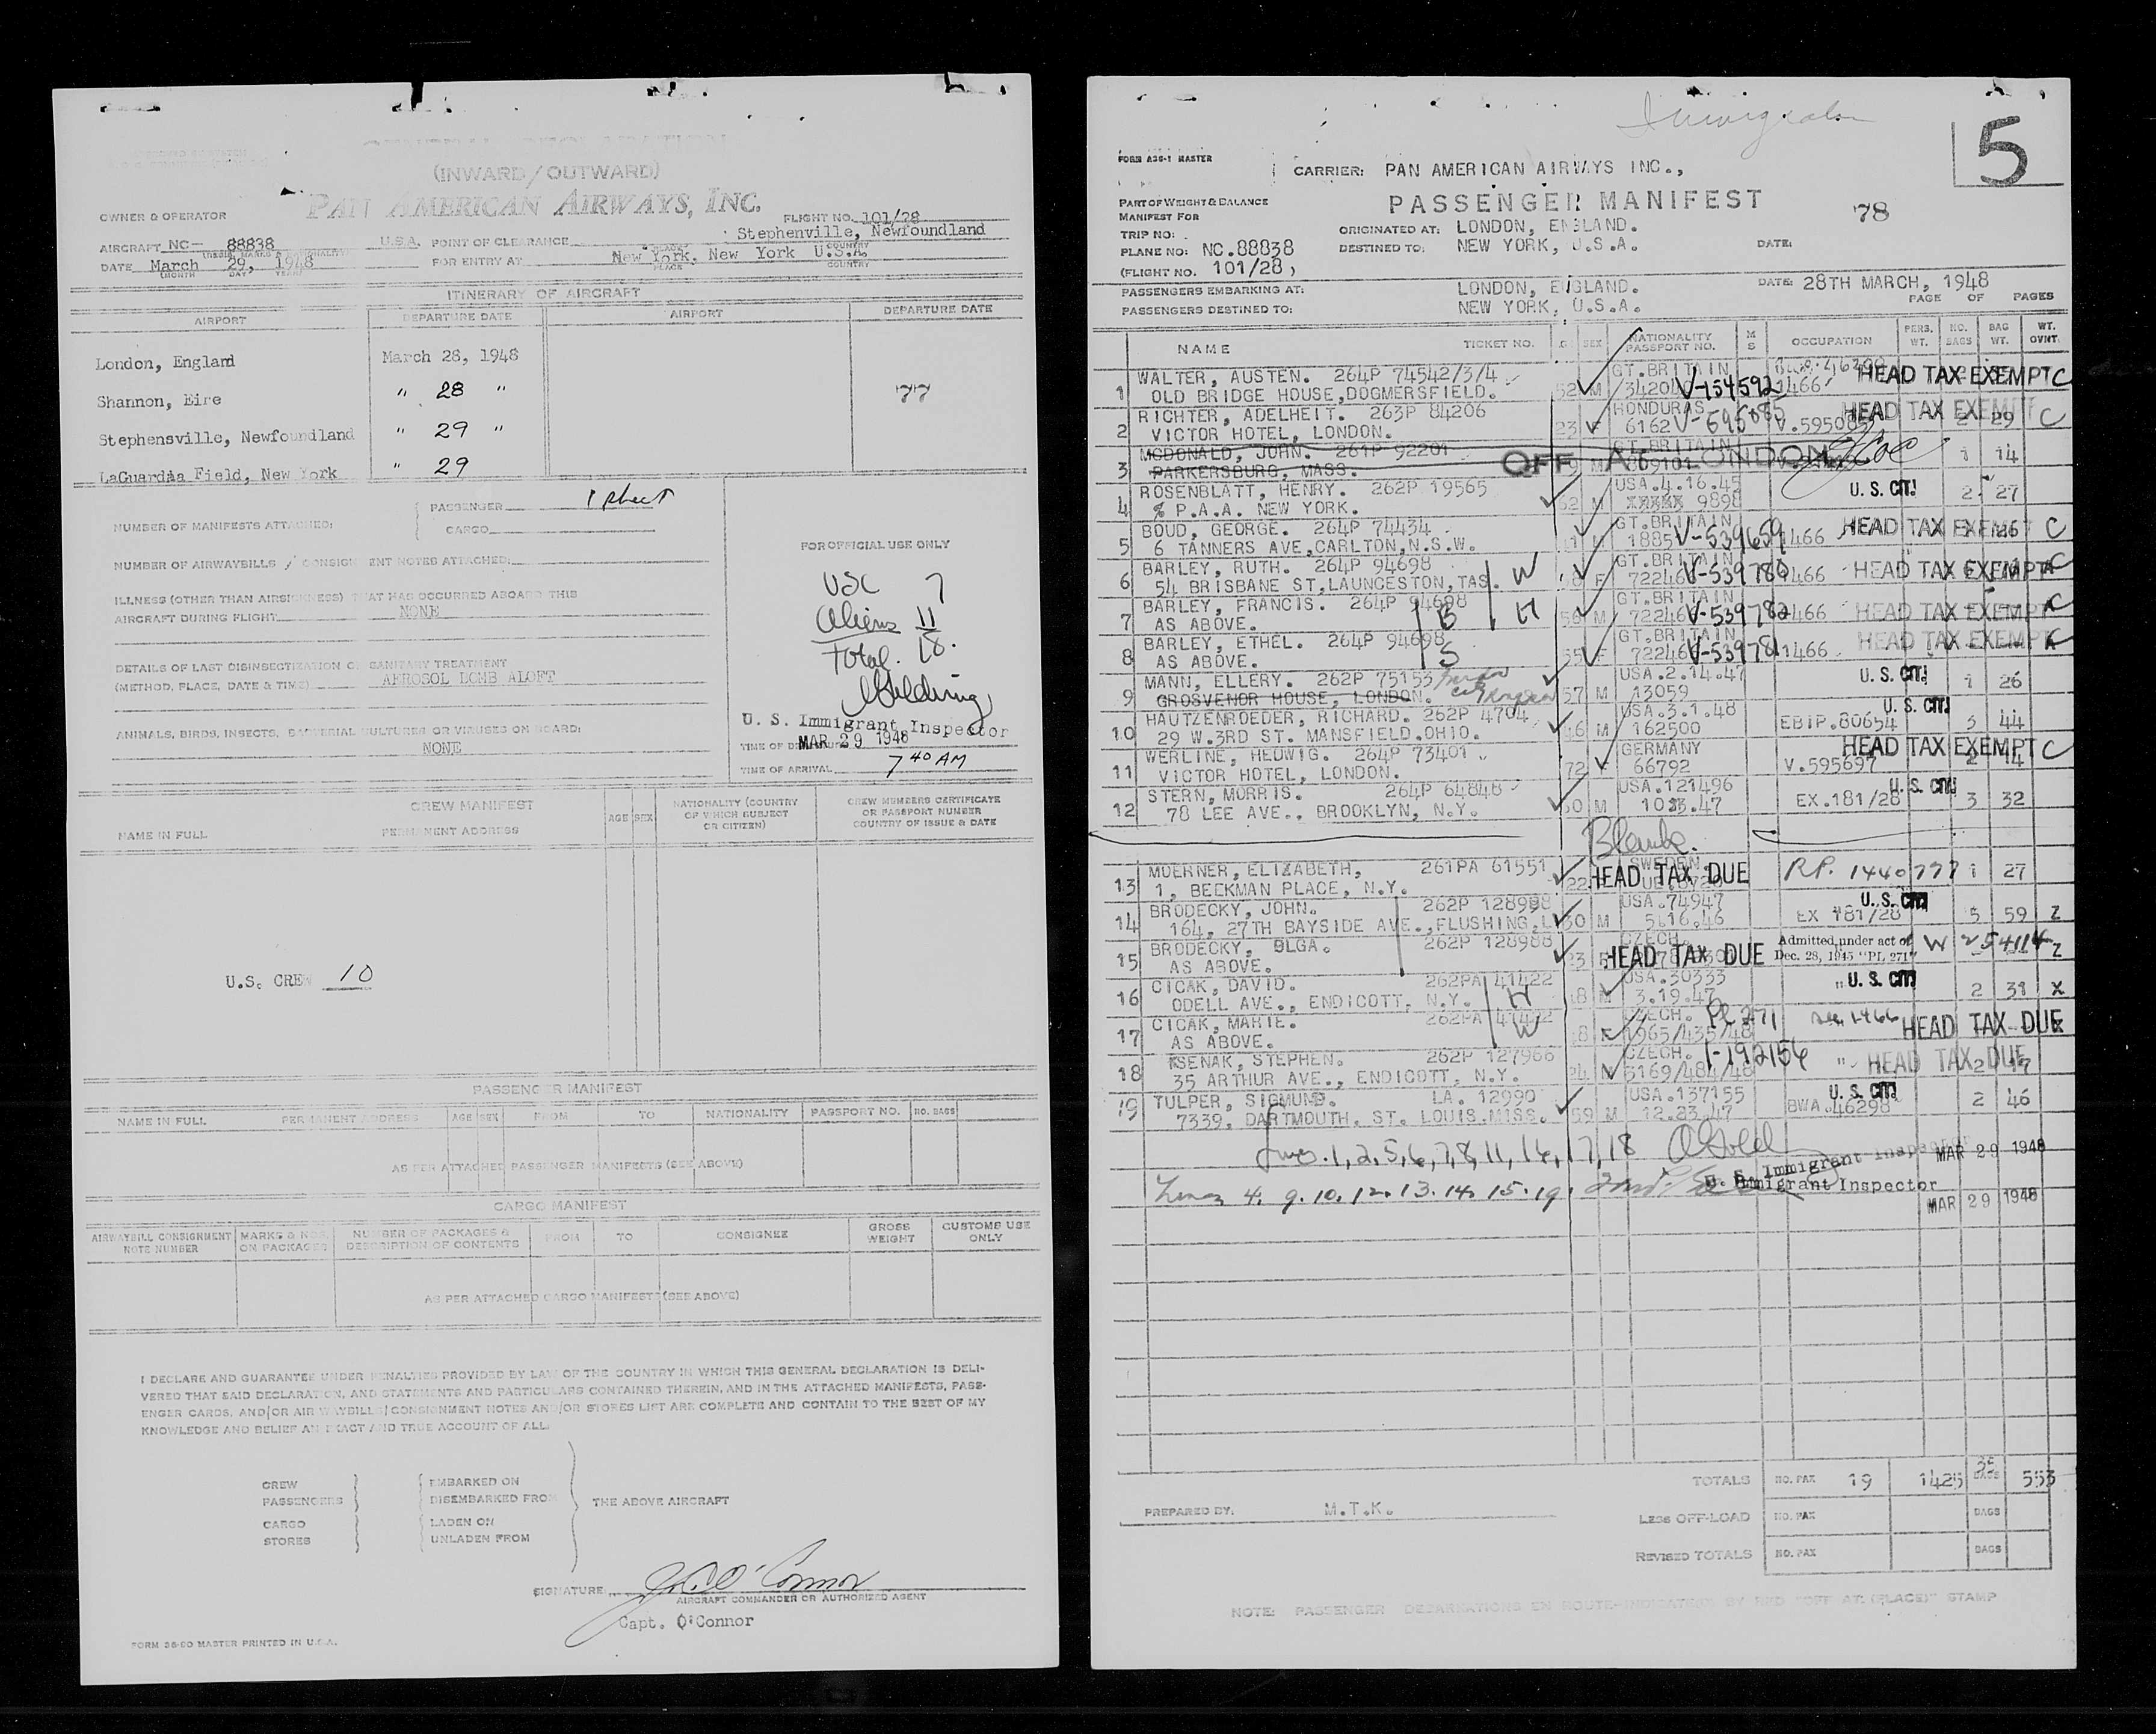 (INWARD/OUTWARD)
PAN AMERICAN AIRWAYS, INC.
OWNER & OPERATOR
FLIGHT NO. 101/28
AIRCRAFT NC- 88838 U.S.A. POINT OF CLEARANCE Stephenville, Newfoundland
DATE March 29, 1948 FOR ENTRY AT New York, New York U.S.A.
MONTH DAY YEAR PLACE COUNTRY
ITINERARY OF AIRCRAFT
AIRPORT DEPARTURE DATE AIRPORT DEPARTURE DATE
London, England March 28, 1948
Shannon, Eire " 28 " 77
Stephensville, Newfoundland " 29 "
LaGuardia Field, New York " 29
PASSENGER 1 sheet
NUMBER OF MANIFESTS ATTACHED:
CARGO
NUMBER OF AIRWAYBILLS / CONSIGNMENT NOTES ATTACHED:
ILLNESS (OTHER THAN AIRSICKNESS) THAT HAS OCCURRED ABOARD THIS
AIRCRAFT DURING FLIGHT NONE
DETAILS OF LAST DISINSECTIZATION OR SANITARY TREATMENT
(METHOD, PLACE, DATE & TIME) AEROSOL BOMB ALOFT
ANIMALS, BIRDS, INSECTS, BACTERIAL CULTURES OR VIRUSES ON BOARD:
NONE
FOR OFFICIAL USE ONLY
USC 7
Aliens 11
Total. 18.
U. S. Immigrant Inspector
MAR 29 1948
TIME OF ARRIVAL 7 40 AM
CREW MANIFEST
NAME IN FULL PERMANENT ADDRESS AGE SEX NATIONALITY (COUNTRY OF WHICH SUBJECT OR CITIZEN) CREW MEMBERS CERTIFICATE OR PASSPORT NUMBER COUNTRY OF ISSUE & DATE
U.S. CREW 10
PASSENGER MANIFEST
NAME IN FULL PERMANENT ADDRESS AGE SEX FROM TO NATIONALITY PASSPORT NO. NO. BAGS
AS PER ATTACHED PASSENGER MANIFESTS (SEE ABOVE)
CARGO MANIFEST
AIRWAYBILL CONSIGNMENT NOTE NUMBER MARKS & NOS. ON PACKAGES NUMBER OF PACKAGES & DESCRIPTION OF CONTENTS FROM TO CONSIGNEE GROSS WEIGHT CUSTOMS USE ONLY
AS PER ATTACHED CARGO MANIFEST (SEE ABOVE)
I DECLARE AND GUARANTEE UNDER PENALTIES PROVIDED BY LAW OF THE COUNTRY IN WHICH THIS GENERAL DECLARATION IS DELI-
VERED THAT SAID DECLARATION, AND STATEMENTS AND PARTICULARS CONTAINED THEREIN, AND IN THE ATTACHED MANIFESTS, PASS-
ENGER CARDS, AND/OR AIR WAYBILLS/CONSIGNMENT NOTES AND/OR STORES LIST ARE COMPLETE AND CONTAIN TO THE BEST OF MY
KNOWLEDGE AND BELIEF AN EXACT AND TRUE ACCOUNT OF ALL
CREW EMBARKED ON
PASSENGERS DISEMBARKED FROM THE ABOVE AIRCRAFT
CARGO LADEN ON
STORES UNLADEN FROM
SIGNATURE J.C. O'Connor
AIRCRAFT COMMANDER OR AUTHORIZED AGENT
Capt. O'Connor
FORM 36-80 MASTER PRINTED IN U.S.A.
Immigration
5
FORM A36-1 MASTER CARRIER: PAN AMERICAN AIRWAYS INC.,
PASSENGER MANIFEST
78
PART OF WEIGHT & BALANCE
MANIFEST FOR
TRIP NO: ORIGINATED AT: LONDON, ENGLAND.
PLANE NO: NC.88838 DESTINED TO: NEW YORK, U.S.A. DATE:
(FLIGHT NO. 101/28)
PASSENGERS EMBARKING AT: LONDON, ENGLAND. DATE: 28TH MARCH, 1948
PASSENGERS DESTINED TO: NEW YORK, U.S.A. PAGE OF PAGES
NAME TICKET NO. SEX NATIONALITY PASSPORT NO. M S OCCUPATION PERS. WT. NO. BAGS BAG WT. WT. OVNT.
1 WALTER, AUSTEN. 264P 74542/3/4 GT.BRITAIN HEAD TAX EXEMPT C
OLD BRIDGE HOUSE, DOGMERSFIELD. 52 M V-154592 1466
2 RICHTER, ADELHEIT. 263P 84206 HONDURAS HEAD TAX EXEMPT 29 C
VICTOR HOTEL, LONDON. 23 F 6162 V-595085 V.595085
3 MCDONALD, JOHN. 261P 92201 GT.BRITAIN
PARKERSBURG, MASS. OFF AT LONDON 1 14
4 ROSENBLATT, HENRY. 262P 19565 USA.4.16.45 U. S. CIT. 2 27
% P.A.A. NEW YORK. 52 M 9898
5 BOUD, GEORGE. 264P 74434 GT.BRITAIN HEAD TAX EXEMPT C
6 TANNERS AVE, CARLTON, N.S.W. 1885 V-539659 1466
6 BARLEY, RUTH. 264P 94698 W GT.BRITAIN HEAD TAX EXEMPT C
54 BRISBANE ST, LAUNCESTON, TAS. F 72246 V-539780 1466
7 BARLEY, FRANCIS. 264P 94698 B H GT.BRITAIN HEAD TAX EXEMPT C
AS ABOVE. 56 M 72246 V-539782 1466
8 BARLEY, ETHEL. 264P 94698 S GT.BRITAIN HEAD TAX EXEMPT
AS ABOVE. 55 F 72246 V-539781 1466
9 MANN, ELLERY. 262P 75153 USA.2.14.47 U. S. CIT. 1 26
GROSVENOR HOUSE, LONDON. 57 M 13059
10 HAUTZENROEDER, RICHARD. 262P 4704 USA.3.1.48 U. S. CIT.
29 W.3RD ST. MANSFIELD, OHIO. 46 M 162500 EBIP.80654 3 44
11 WERLINE, HEDWIG. 264P 73401 GERMANY HEAD TAX EXEMPT C
VICTOR HOTEL, LONDON. 72 F 66792 V.595697 2 14
12 STERN, MORRIS. 264P 64848 USA.121496 U. S. CIT.
78 LEE AVE., BROOKLYN, N.Y. 60 M 1023.47 EX.181/28 3 32
Blank.
13 MOERNER, ELIZABETH, 261PA 61551 SWEDEN HEAD TAX DUE RP. 1440777 1 27
1, BEEKMAN PLACE, N.Y. 22
14 BRODECKY, JOHN. 262P 128988 USA.74947 U. S. CIT.
164, 27TH BAYSIDE AVE., FLUSHING, L 60 M 5.16.46 EX 181/28 5 59 Z
15 BRODECKY, OLGA. 262P 128988 CZECH. HEAD TAX DUE Admitted under act of W
AS ABOVE. Dec. 28, 1945 "PL 271" Z
16 CICAK, DAVID. 262PA 41422 H USA.30333 U. S. CIT.
ODELL AVE., ENDICOTT, N.Y. M 3.19.47 2 31 X
17 CICAK, MARIE. 262PA 41422 W CZECH. PL 271 1466 HEAD TAX DUE
AS ABOVE. F 1965/435/48
18 KSENAK, STEPHEN. 262P 127966 CZECH. 1-192156 " HEAD TAX DUE
35 ARTHUR AVE., ENDICOTT, N.Y. 24 M 5169/484/48
19 TULPER, SIGMUND. LA. 12990 USA.137155 U. S. CIT.
7339, DARTMOUTH, ST. LOUIS.MISS. 59 M 12.23.47 BWA.46298 2 46
Lines 1, 2, 5, 6, 7, 8, 11, 16, 17, 18
U. S. Immigrant Inspector MAR 29 1948
Lines 4. 9. 10. 12. 13. 14. 15. 19.
U. S. Immigrant Inspector
MAR 29 1948
TOTALS NO. PAX 19 1425 35 BAGS 553
PREPARED BY: M.T.K.
LESS OFF-LOAD NO. PAX BAGS
REVISED TOTALS NO. PAX BAGS
NOTE: PASSENGER DEPARNATIONS EN ROUTE-INDICATED BY RED "OFF AT (PLACE)" STAMP